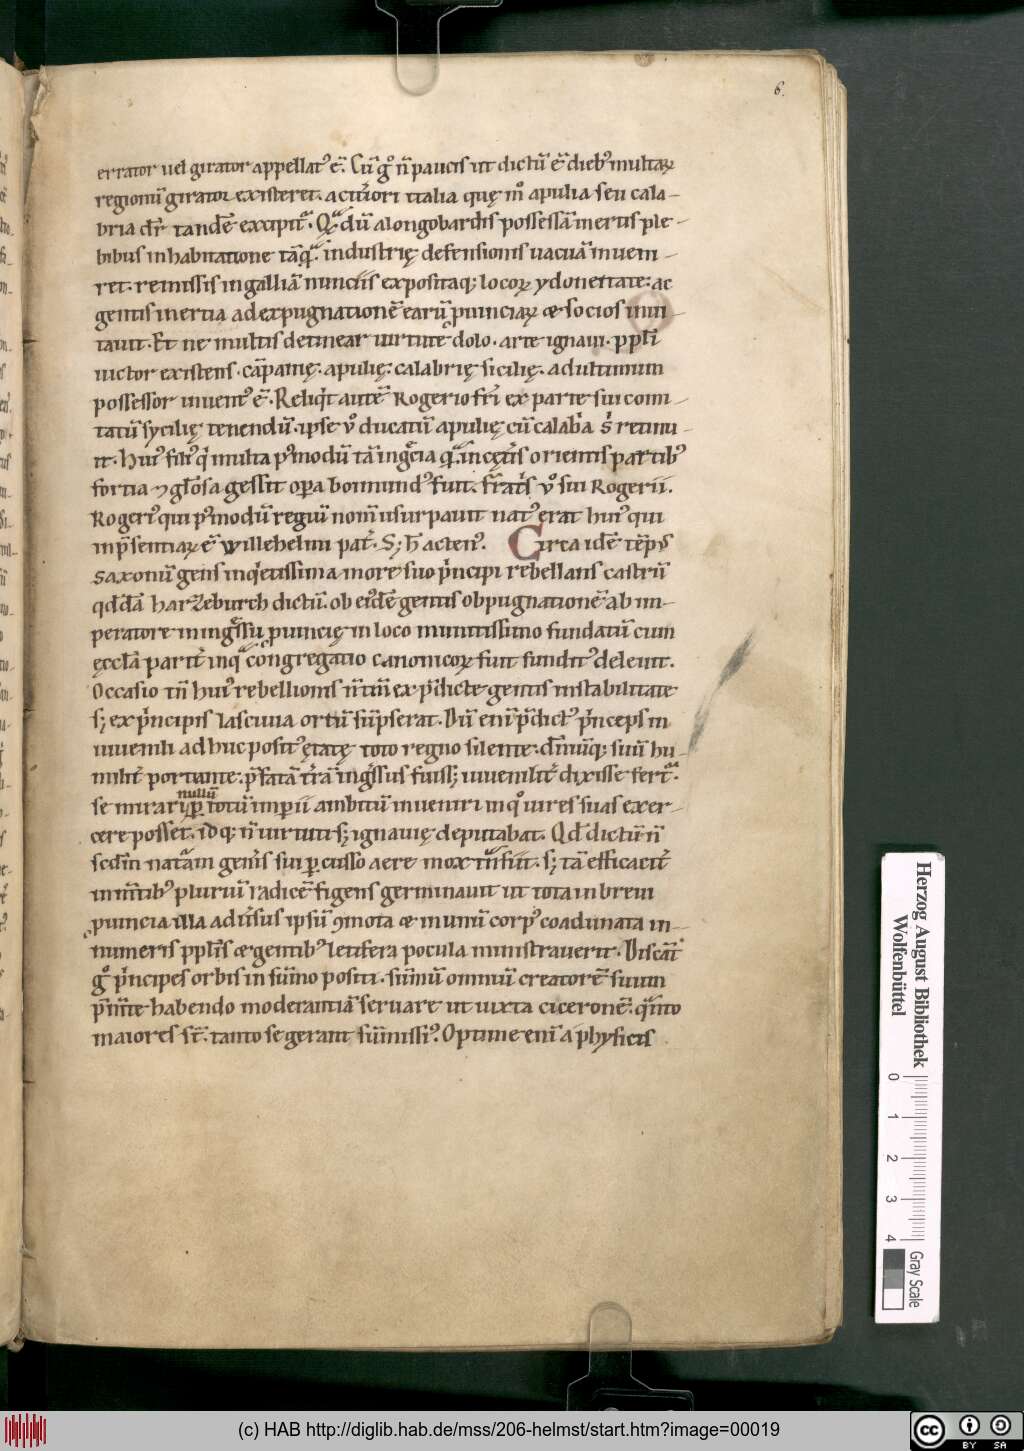 6.
errator uel girator appellat᾽ ē. Cū gͦ n̄ paucis ut dictū ē dieb᷒ multaꝝ
regionū girator existeret. acu᷑iori italia quę m̊ apulia seu cala-
bria dr̄ tandē excipit᷑. Quā dū a longobardis possessā inertis ple-
bibus inhabitatione tāq̄ industrię defensionis uacuā inuem-
ret. remissis in galliā nunciis expositaq; locoꝝ ydoneitate. ac
gentis inertia ad expugnationē earū ꝓuinciaꝝ & socios inui
tauit. Et ne multis detinear uirtute dolo. arte ignaui. ppl̄i
uictor existens. cāpanię. apulię. calabrię sicilię. ad ultimum
possessor inuent᾽ ē. Reliq̇t autē Rogerio fr̄i ex parte sui comi-
tatū sycilię tenendū. ipse ů ducatū apulię cū calab̄a s̄ retinu-
it. Hui᾽ fili᾽ q̇ multa p᾽modū tā in gręcia q̄ in cęt̄is orientis partib᷒
fortia ⁊ gl̄osa gessit opa boimund᾽ fuit. Fr̄atis ů sui Rogerii.
Roger᾽ qui p᾽modū regiū nom̄ usurpauit nat᾽ erat hui᾽ qui
in p̄sentiaꝝ ē Willehelmi pat᷑. S; h̄ acten᾽. Circa idē tēp᾽
Saxonū gens inq̇etissima more suo ṗncipi rebellans castrū
qd̄dā harzeburch dictū. ob ei᾽dē gentis obpugnationē ab im-
peratore in ingressu ꝓuincię in loco munitissimo fundatū cum
ęccl̄a parit᷑ in qua congregatio canonicoꝝ fuit fundit᾽ deleuit.
Occasio tn̄ hui᾽ rebellionis n̄ tm̄ ex p̄dicte gentis instabilitate
s; ex ṗncipis lasciuia ortū sūpserat. Dū eni p̄dict᾽ ṗnceps in
iuuenili adhuc posit᾽ ętatę toto regno silente. dn̄iūq; suū hu-
milit᷑ portante. p̄fatā t̄rā ingressus fuiss; iuuenilit᷑ dixisse fert᷑.
se mirari nullū ꝑ totū imꝑii ambitū inueniri in qͦ uires suas exer-
cere posset. idq; n̄ uirtuti s; ignauię deputabat. Qd̄ dictū n̄
scd̄m naturam gen̄is sui ꝑcusso aere mox tn̄siit. s; tā efficacit᷑
in m̄tib᷒ plurimū radicē figens germinauit ut tota in breui
ꝓuincia illa adu᷑sus ipsū ꝯmota & in unū corp᾽ coadunata in-
numeris ppl̄is & gentib᷒ letifera pocula ministrauerit. Discāt
gͦ ṗncipes orbis in sūmo positi. sūmū omniū creatorē suum
p̄ m̄te habendo moderantiā seruare ut iuxta ciceronē. quanto
maiores st̄. tanto se gerant sūmissi᾽. Optime eni a physicis
Herzog August Bibliothek
Wolfenbüttel
0 1 2 3 4
Gray Scale
(c) HAB http://diglib.hab.de/mss/206-helmst/start.htm?image=00019
cc BY SA